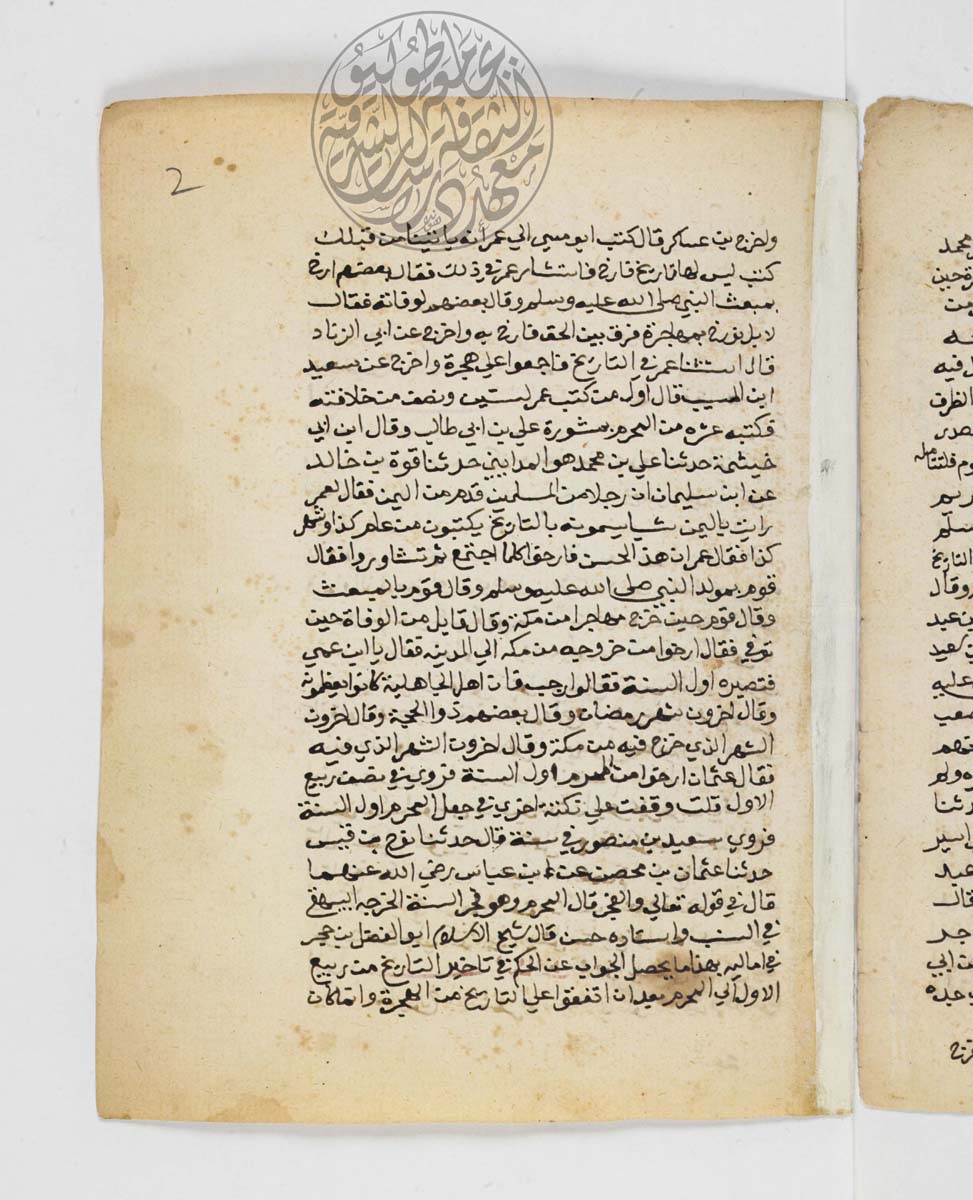 2
واخرج بن عساكر قال كتب ابو موسي الي عمر انه ياتينا من قبلك
كتب ليس لها تاريخ فارخ فاستشار عمر في ذلك فقال بعضهم ارخ
بمبعث النبي صلى الله عليه وسلم وقال بعضهم لوفاته فقال
لا بل نورخ بمهاجرة فرق بين الحق فارخ به واخرج عن ابي الزناد
قال استشار عمر في التاريخ فاجمعوا علي هجرة واخرج عن سعيد
ابن المسيب قال اول من كتب عمر لسنتين ونصف من خلافته
فكتبه عشره من المحرم بمشورة علي بن ابي طالب وقال ابن ابي
خيثمة حدثنا علي بن محمد هو المدايني حدثنا قوة بن خالد
عن ابن سليمان ان رجلا من المسلمين قدم من اليمن فقال لعمر
رايت باليمن شيا يسمونه بالتاريخ يكتبون من عام كذا وشهر
كذا فقال عمر ان هذ الحسن فارحوا كلما اجتمع ثم تشاوروا فقال
قوم بمولد النبي صلى الله عليه وسلم وقال قوم بالمبعث
وقال قوم حين خرج مهاجرا من مكة وقال قايل من الوفاة حين
توفي فقال ارخوا من خروجه من مكه الي المدينه فقال يا ابن عمي
فتصيره اول السنة فقالوا رجب فان اهل الجاهلية كانوا يعظمونه
وقال اخرون شهر رمضان وقال بعضهم ذوا الحجة وقال اخرون
الشهر الذي خرج فيه من مكة وقال اخرون الشهر الذي فيه
فقال عثمان ارخوا من المحرم اول السنة فروي في نصف ربيع
الاول قلت وقفت علي تكتة اخري في جعل المحرم اول السنة
فروي سعيد بن منصور في سنة قال حدثنا نوح بن قيس
حدثنا عثمان بن محصن عن ابن عباس رضي الله عنهما
قال في قوله تعالي والفجر قال المحرم وهو فجر السنة اخرجه البيهقي
في الشب واستاره حسن قال شيخ الاسلام ابو الفضل بن حجر
في اماليه بهذا ما يحصل الجواب عن الحكم في تاخير التاريخ من ربيع
الاول الي المحرم بعد ان اتفقوا علي التاريخ من الهجرة وانما كان